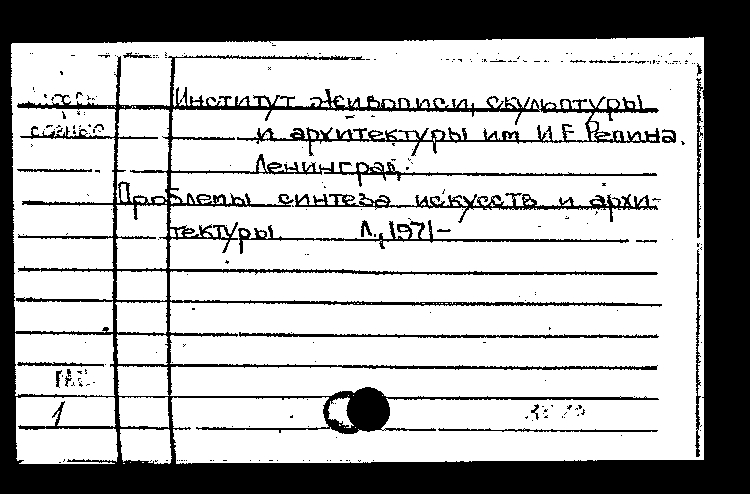 Институт живописи, скульптуры
и архитектуры им И.Е Репина.
Ленинград.
Проблемы синтеза искусств и архи-
тектуры. Л., 1971-
1